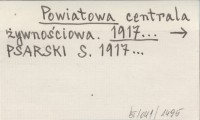 Powiatowa centrala
żywnościowa. 1917... →
PSARSKI S. 1917...